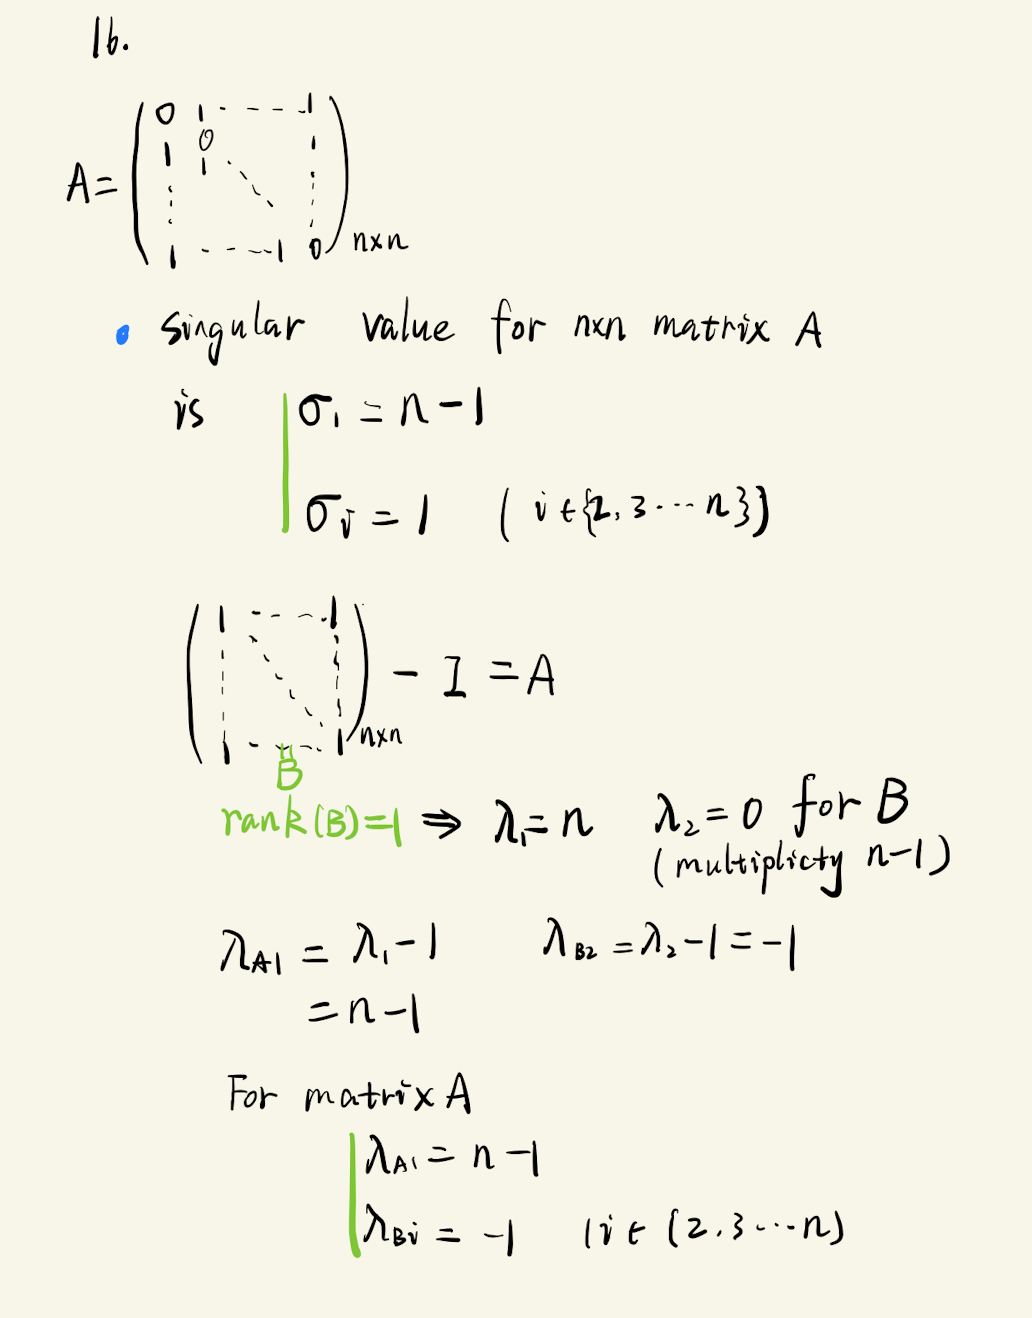 1b.
0 1 - - - - 1
0
A = ( 1 1 ) n×n
1 - - - - 1 0
• singular value for n×n matrix A
is σ₁ = n - 1
σi = 1 ( i ∈ {2, 3 ··· n})
( 1 - - - - 1
1 - - - - 1 ) n×n - I = A
B
rank(B)=1 ⇒ λ₁ = n λ₂ = 0 for B
(multiplicty n-1)
λA1 = λ₁ - 1 λB2 = λ₂ - 1 = -1
= n - 1
For matrix A
λA1 = n - 1
λBi = -1 (i ∈ (2, 3 ··· n)